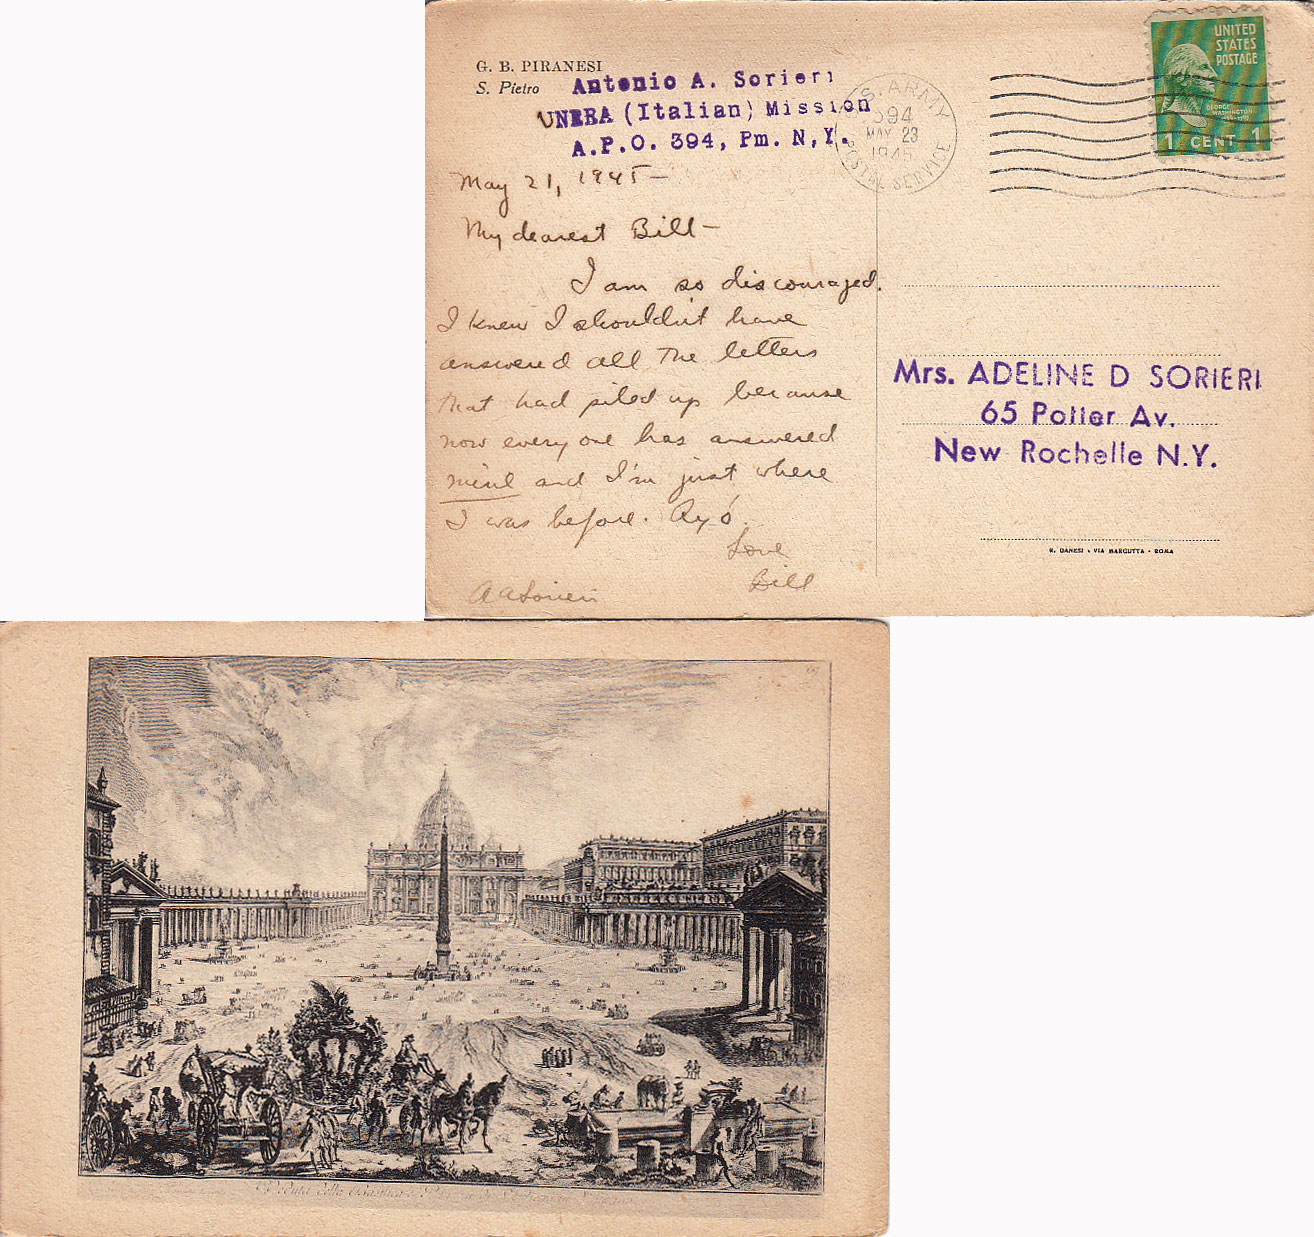 G. B. PIRANESI
S. Pietro
Antonio A. Sorieri
UNRRA (Italian) Mission
A.P.O. 394, Pm. N,Y.
U.S. ARMY
394
MAY 23
1945
POSTAL SERVICE
UNITED
STATES
POSTAGE
GEORGE
WASHINGTON
1 CENT 1
May 21, 1945—
My dearest Bill—
I am so discouraged.
I knew I shouldn't have
answered all the letters
that had piled up because
now everyone has answered
mine and I'm just where
I was before.
Love
Bill
AASorieri
Mrs. ADELINE D SORIERI
65 Potter Av.
New Rochelle N.Y.
R. DANESI - VIA MARGUTTA - ROMA
Veduta della Basilica